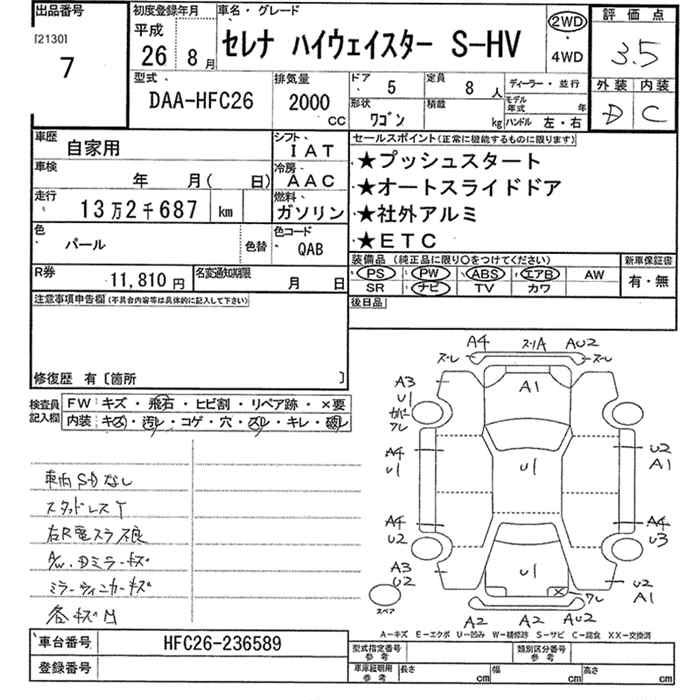 出品番号 初度登録年月 車名・グレード 評価点
[2130] 平成 2WD
7 26 8月 セレナ ハイウェイスター S-HV 3.5
4WD
型式 排気量 ドア 5 定員 8人 ディーラー・並行 外装 内装
DAA-HFC26 2000cc 形状 ワゴン 積載 kg モデル年式 年 D C
ハンドル 左・右
車歴 自家用 シフト IAT セールスポイント(正常に機能するものに限ります)
車検 年 月( 日) 冷房 AAC ★プッシュスタート
走行 13万2千687 km 燃料 ガソリン ★オートスライドドア
★社外アルミ
色 パール 色替 色コード QAB ★ETC
装備品(純正品に限り○をつけてください) 新車保証書
R券 11,810円 名変通知期限 月 日 PS PW ABS エアB AW 有・無
SR ナビ TV カワ
注意事項申告欄(不具合内容等は具体的に記入して下さい) 後日品
修復歴 有〔箇所 〕
検査員記入欄 FW:キズ・飛石・ヒビ割・リペア跡・×要
内装:キズ・汚レ・コゲ・穴・スレ・キレ・破レ
車両SDなし
スタッドレスT
A/W、Dミラーキズ
ミラーウィンカーキズ
A4 スリA AU2
スレ スレ
A3 A1
U1
カバー
ワレ
A4 U2
U1 U1 A1
A4 A4
U2 U3
A3 U1 U2
U2 ワレ A1
スペア A2 A2 AU2
A-キズ E-エクボ U-凹み W-補修跡 S-サビ C-腐食 XX-交換済
車台番号 HFC26-236589 型式指定番号 参考 類別区分番号 参考
登録番号 車庫証明用 参考 長さ cm 幅 cm 高さ cm